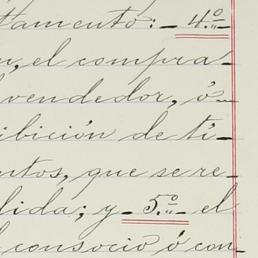 tamento: - 4.º -
n, el compra-
vendedor, ó -
ibición de tí-
ntos, que se re-
lida; y - 5.º - el
consocio ó con-